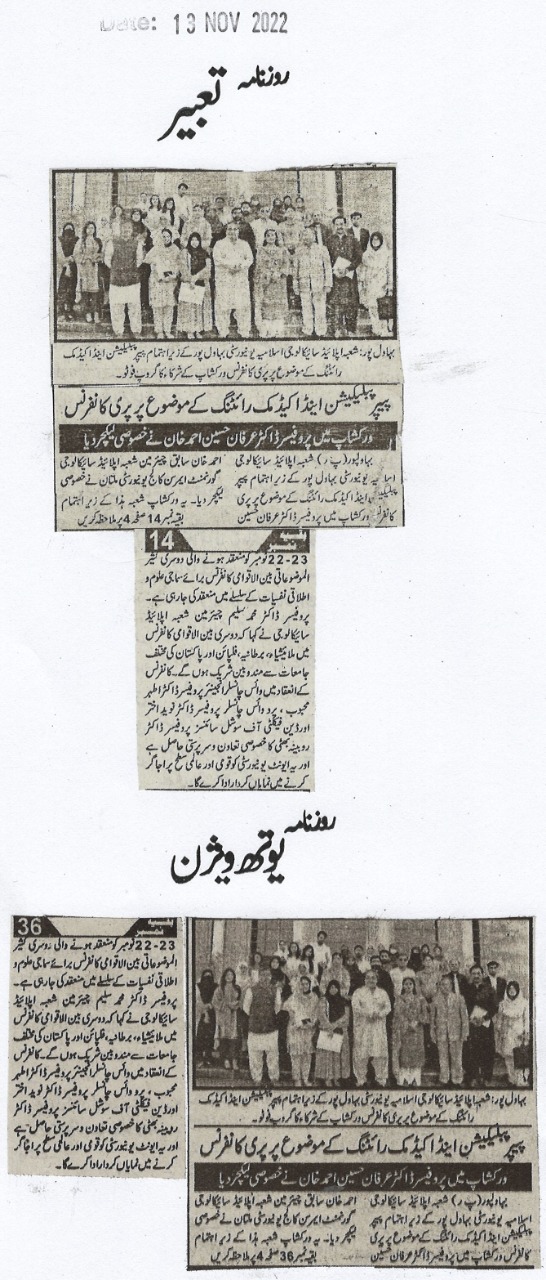 Date: 13 NOV 2022
روزنامہ تعبیر
بہاول پور: شعبہ اپلائیڈ سائیکالوجی اسلامیہ یونیورسٹی بہاول پور کے زیر اہتمام پیپر پبلیکیشن اینڈ اکیڈمک
رائٹنگ کے موضوع پر پری کانفرنس ورکشاپ کے شرکاء کا گروپ فوٹو۔
پیپر پبلیکیشن اینڈ اکیڈمک رائٹنگ کے موضوع پر پری کانفرنس
ورکشاپ میں پروفیسر ڈاکٹر عرفان حسین احمد خان نے خصوصی لیکچر دیا
بہاولپور (پ ر) شعبہ اپلائیڈ سائیکالوجی
اسلامیہ یونیورسٹی بہاول پور کے زیر اہتمام پیپر
پبلیکیشن اینڈ اکیڈمک رائٹنگ کے موضوع پر پری
کانفرنس ورکشاپ میں پروفیسر ڈاکٹر عرفان حسین
احمد خان سابق چیئرمین شعبہ اپلائیڈ سائیکالوجی
گورنمنٹ ایمرسن کالج یونیورسٹی ملتان نے خصوصی
لیکچر دیا۔ یہ ورکشاپ شعبہ ہذا کے زیر اہتمام
بقیہ نمبر 14 صفحہ 4 پر ملاحظہ کریں
بقیہ نمبر 14
22-23 نومبر کو منعقد ہونے والی دوسری کثیر
الموضوعاتی بین الاقوامی کانفرنس برائے سماجی علوم و
اطلاقی نفسیات کے سلسلے میں منعقد کی جارہی ہے۔
پروفیسر ڈاکٹر محمد سلیم چیئرمین شعبہ اپلائیڈ
سائیکالوجی نے کہا کہ دوسری بین الاقوامی کانفرنس
میں ملائیشیاء، برطانیہ، فلپائن اور پاکستان کی مختلف
جامعات سے مندوبین شریک ہوں گے۔ کانفرنس
کے انعقاد میں وائس چانسلر انجینئر پروفیسر ڈاکٹر اطہر
محبوب، پرو وائس چانسلر پروفیسر ڈاکٹر نوید اختر
اور ڈین فیکلٹی آف سوشل سائنسز پروفیسر ڈاکٹر
روبینہ بھٹی کا خصوصی تعاون و سرپرستی حاصل ہے
اور یہ ایونٹ یونیورسٹی کو قومی اور عالمی سطح پر اجاگر
کرنے میں نمایاں کردار ادا کرے گا۔
روزنامہ یوتھ ویژن
بہاول پور: شعبہ اپلائیڈ سائیکالوجی اسلامیہ یونیورسٹی بہاول پور کے زیر اہتمام پیپر پبلیکیشن اینڈ اکیڈمک
رائٹنگ کے موضوع پر پری کانفرنس ورکشاپ کے شرکاء کا گروپ فوٹو۔
پیپر پبلیکیشن اینڈ اکیڈمک رائٹنگ کے موضوع پر پری کانفرنس
ورکشاپ میں پروفیسر ڈاکٹر عرفان حسین احمد خان نے خصوصی لیکچر دیا
بہاولپور (پ ر) شعبہ اپلائیڈ سائیکالوجی
اسلامیہ یونیورسٹی بہاول پور کے زیر اہتمام پیپر
پبلیکیشن اینڈ اکیڈمک رائٹنگ کے موضوع پر پری
کانفرنس ورکشاپ میں پروفیسر ڈاکٹر عرفان حسین
احمد خان سابق چیئرمین شعبہ اپلائیڈ سائیکالوجی
گورنمنٹ ایمرسن کالج یونیورسٹی ملتان نے خصوصی
لیکچر دیا۔ یہ ورکشاپ شعبہ ہذا کے زیر اہتمام
بقیہ نمبر 36 صفحہ 4 پر ملاحظہ کریں
بقیہ نمبر 36
22-23 نومبر کو منعقد ہونے والی دوسری کثیر
الموضوعاتی بین الاقوامی کانفرنس برائے سماجی علوم و
اطلاقی نفسیات کے سلسلے میں منعقد کی جارہی ہے۔
پروفیسر ڈاکٹر محمد سلیم چیئرمین شعبہ اپلائیڈ
سائیکالوجی نے کہا کہ دوسری بین الاقوامی کانفرنس
میں ملائیشیاء، برطانیہ، فلپائن اور پاکستان کی مختلف
جامعات سے مندوبین شریک ہوں گے۔ کانفرنس
کے انعقاد میں وائس چانسلر انجینئر پروفیسر ڈاکٹر اطہر
محبوب، پرو وائس چانسلر پروفیسر ڈاکٹر نوید اختر
اور ڈین فیکلٹی آف سوشل سائنسز پروفیسر ڈاکٹر
روبینہ بھٹی کا خصوصی تعاون و سرپرستی حاصل ہے
اور یہ ایونٹ یونیورسٹی کو قومی اور عالمی سطح پر اجاگر
کرنے میں نمایاں کردار ادا کرے گا۔